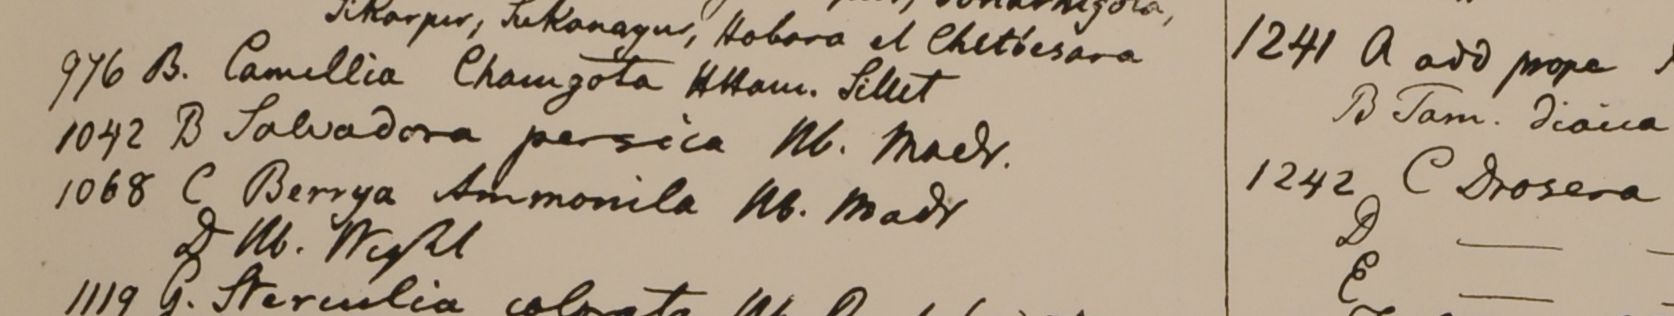 Sikarpur, Sukanagur, Hobora et Chetoesara
976 B. Camellia Chamgota HHam. Sillet
1042 B Salvadora persica Hb. Madr.
1068 C Berrya Ammonila Hb. Madr
D Hb. Wight
1119 G. Sterculia colorata Hb.
1241 A add prope
B Tam. dioica
1242 C Drosera
D —
E —